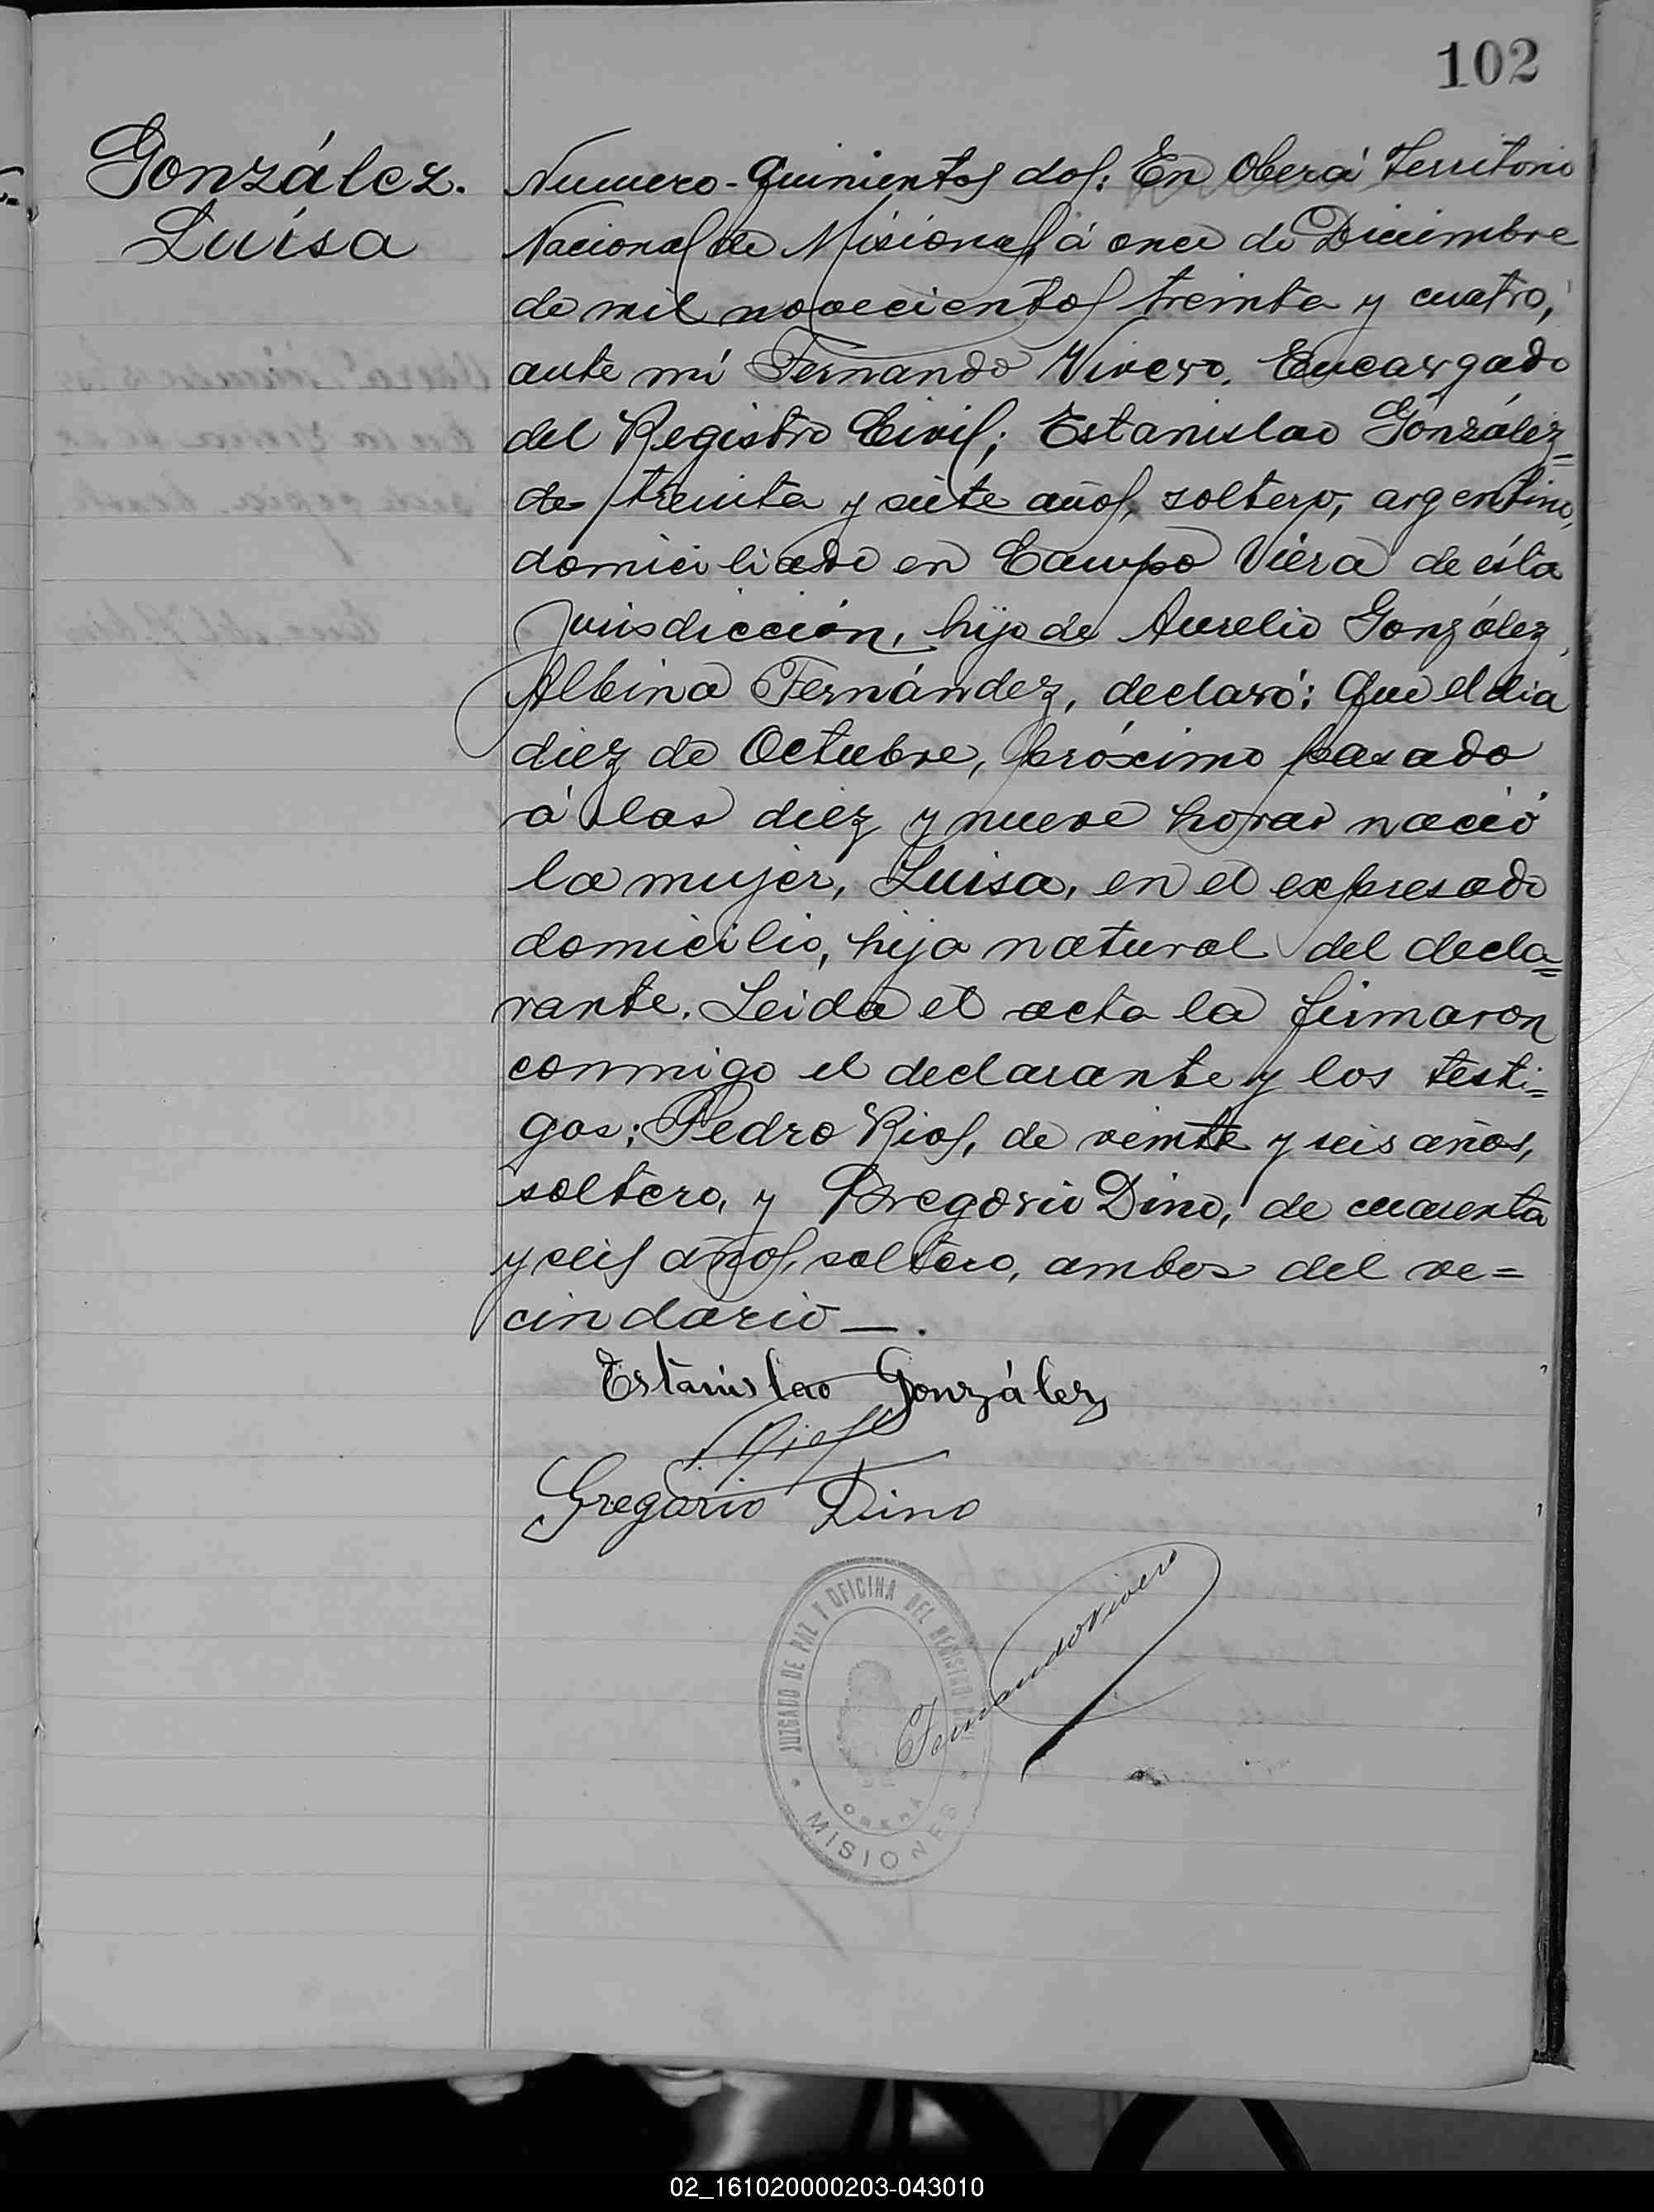 102
González.
Luisa
Numero-Quinientos dos: En Oberá Territorio
Nacional de Misiones á once de Diciembre
de mil novecientos treinta y cuatro,
ante mí Fernando Vivero. Encargado
del Registro Civil; Estanislao González=
de treinta y siete años, soltero, argentino,
domiciliado en Campo Viera de ésta
Jurisdicción, hijo de Aurelio González,
Albina Fernández, declaró: Que el dia
diez de Octubre, próximo pasado
á las diez y nueve horas nació
la mujer, Luisa, en el expresado
domicilio, hija natural del decla=
rante. Leida el acta la firmaron
conmigo el declarante y los testi=
gos; Pedro Rios, de veinte y seis años,
soltero, y Gregorio Dino, de cuarenta
y seis años, soltero, ambos del ve=
cindario—.
Estanislao González
Rios
Gregorio Dino
JUZGADO DE PAZ Y OFICINA DEL REGISTRO
Fernando Vivero
OBERÁ
MISIONES
02_161020000203-043010